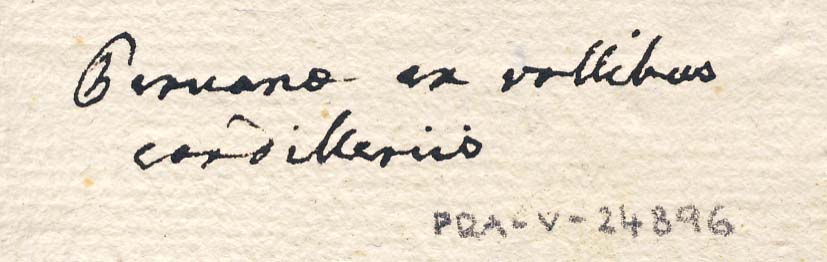 Peruano ex vallibus
cordilleriis
PRA-V-24896